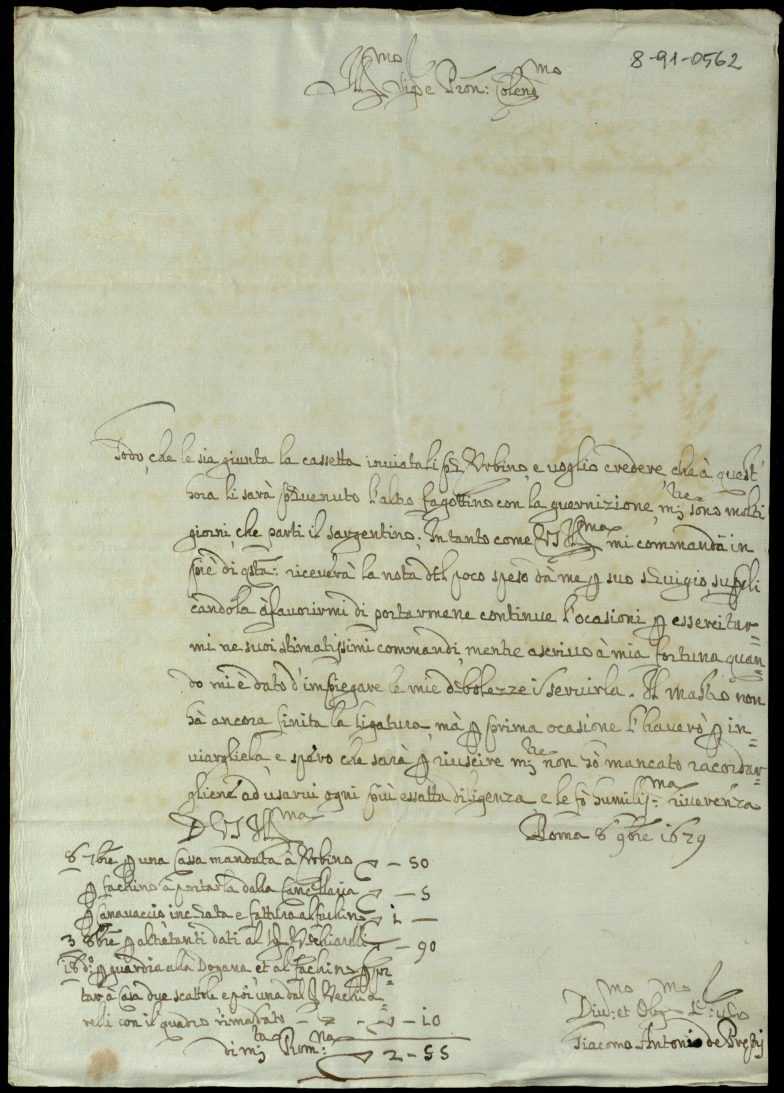 8-91-0562
Ill.mo Sig.e Pron: Colend.mo
Godo, che le sia giunta la cassetta inviatali p Urbino, e voglio credere, che à quest'
hora li sarà pervenuto l'altro fagottino con la guernizione, m;tre sono molti
giorni, che parti il sargentino; In tanto come VS Ill.ma mi commanda in
piè di qsta: riceverà la nota del poco speso dà me p suo servigio, suppli
candola à favorirmi di portarmene continue l'ocasioni p essercitar=
mi ne suoi stimatissimi commandi, mentre ascrivo à mia fortuna quan=
do mi è dato d'impiegare le mie debolezze i servirla. Il mastro non
hà ancora finita la ligatura, mà p prima ocasione l'haverò p in=
viargliela e spero che serà p riuscire m;tre non hò mancato racordar=
gliene ad usarvi ogni più essatta diligenza e le fò humiliss:ma riverenza
D VS Ill.ma
Roma 8 9bre 1679
8 7bre p una Cassa mandata à Urbino — 50
p fachino à portarla dalla Cancellaria — 5
p Canavaccio incerata e fattura al fachino 1 —
3 8bre p altretanti dati al Sr Vechiarelli — 90
18 do: p guardia alla Dogana, et al fachino p por=
tare à Casa due scattole e poi una dal Sr Vechia=
relli con il quadro rimandato — — 10
di m;ta Rom:na 2 — 55
Div:mo et Obg.mo S:
Giacomo Antonio de